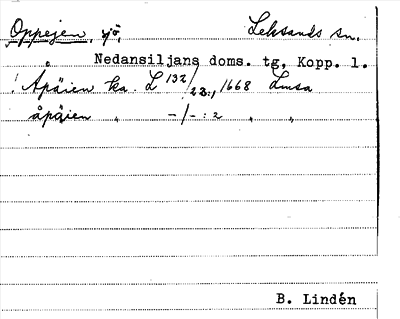 Oppejen, sjö, Leksands sn.
Nedansiljans doms. tg, Kopp. l.
! Åpäien ka. L 132/23:1 1668 Lmsa
åpäien " -/- : 2 " "
B. Lindén